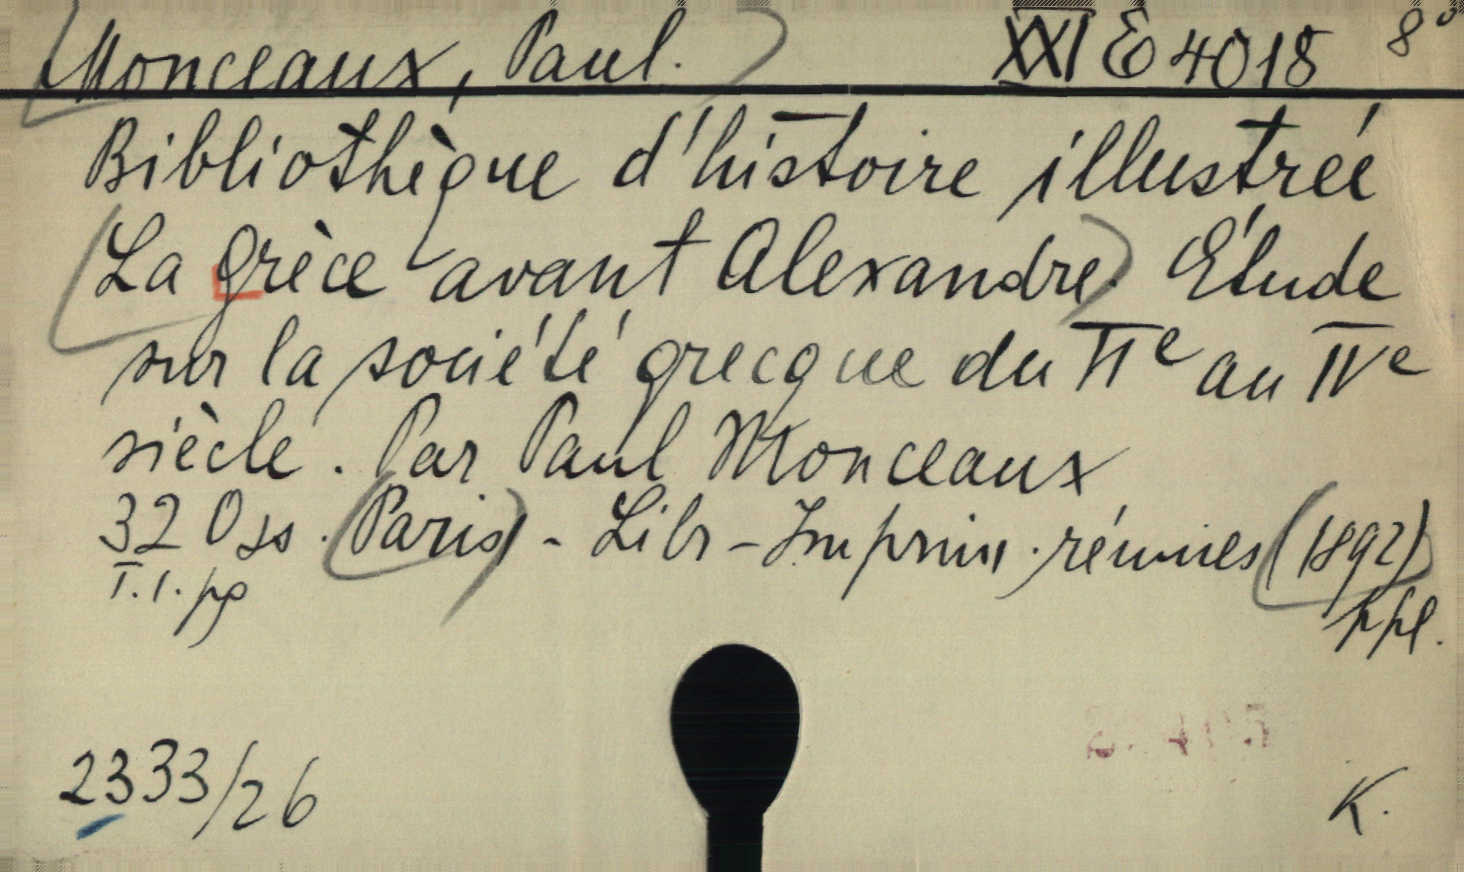 Monceaux, Paul. XXI E 4018 8°
Bibliothèque d'histoire illustrée
La Grèce avant Alexandre. Étude
sur la société grecque du VIe au IVe
siècle. Par Paul Monceaux
320 ss. Paris - Libr - Imprim. réunies (1892)
T. 1. pg
ppl.
2333/26
K.